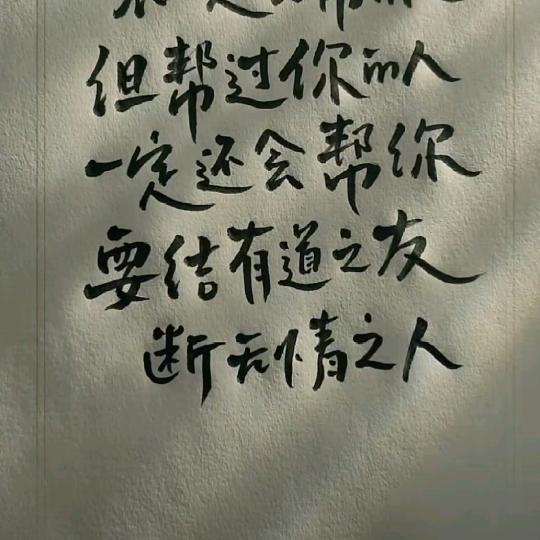 但帮过你的人
一定还会帮你
要结有道之友
断无情之人